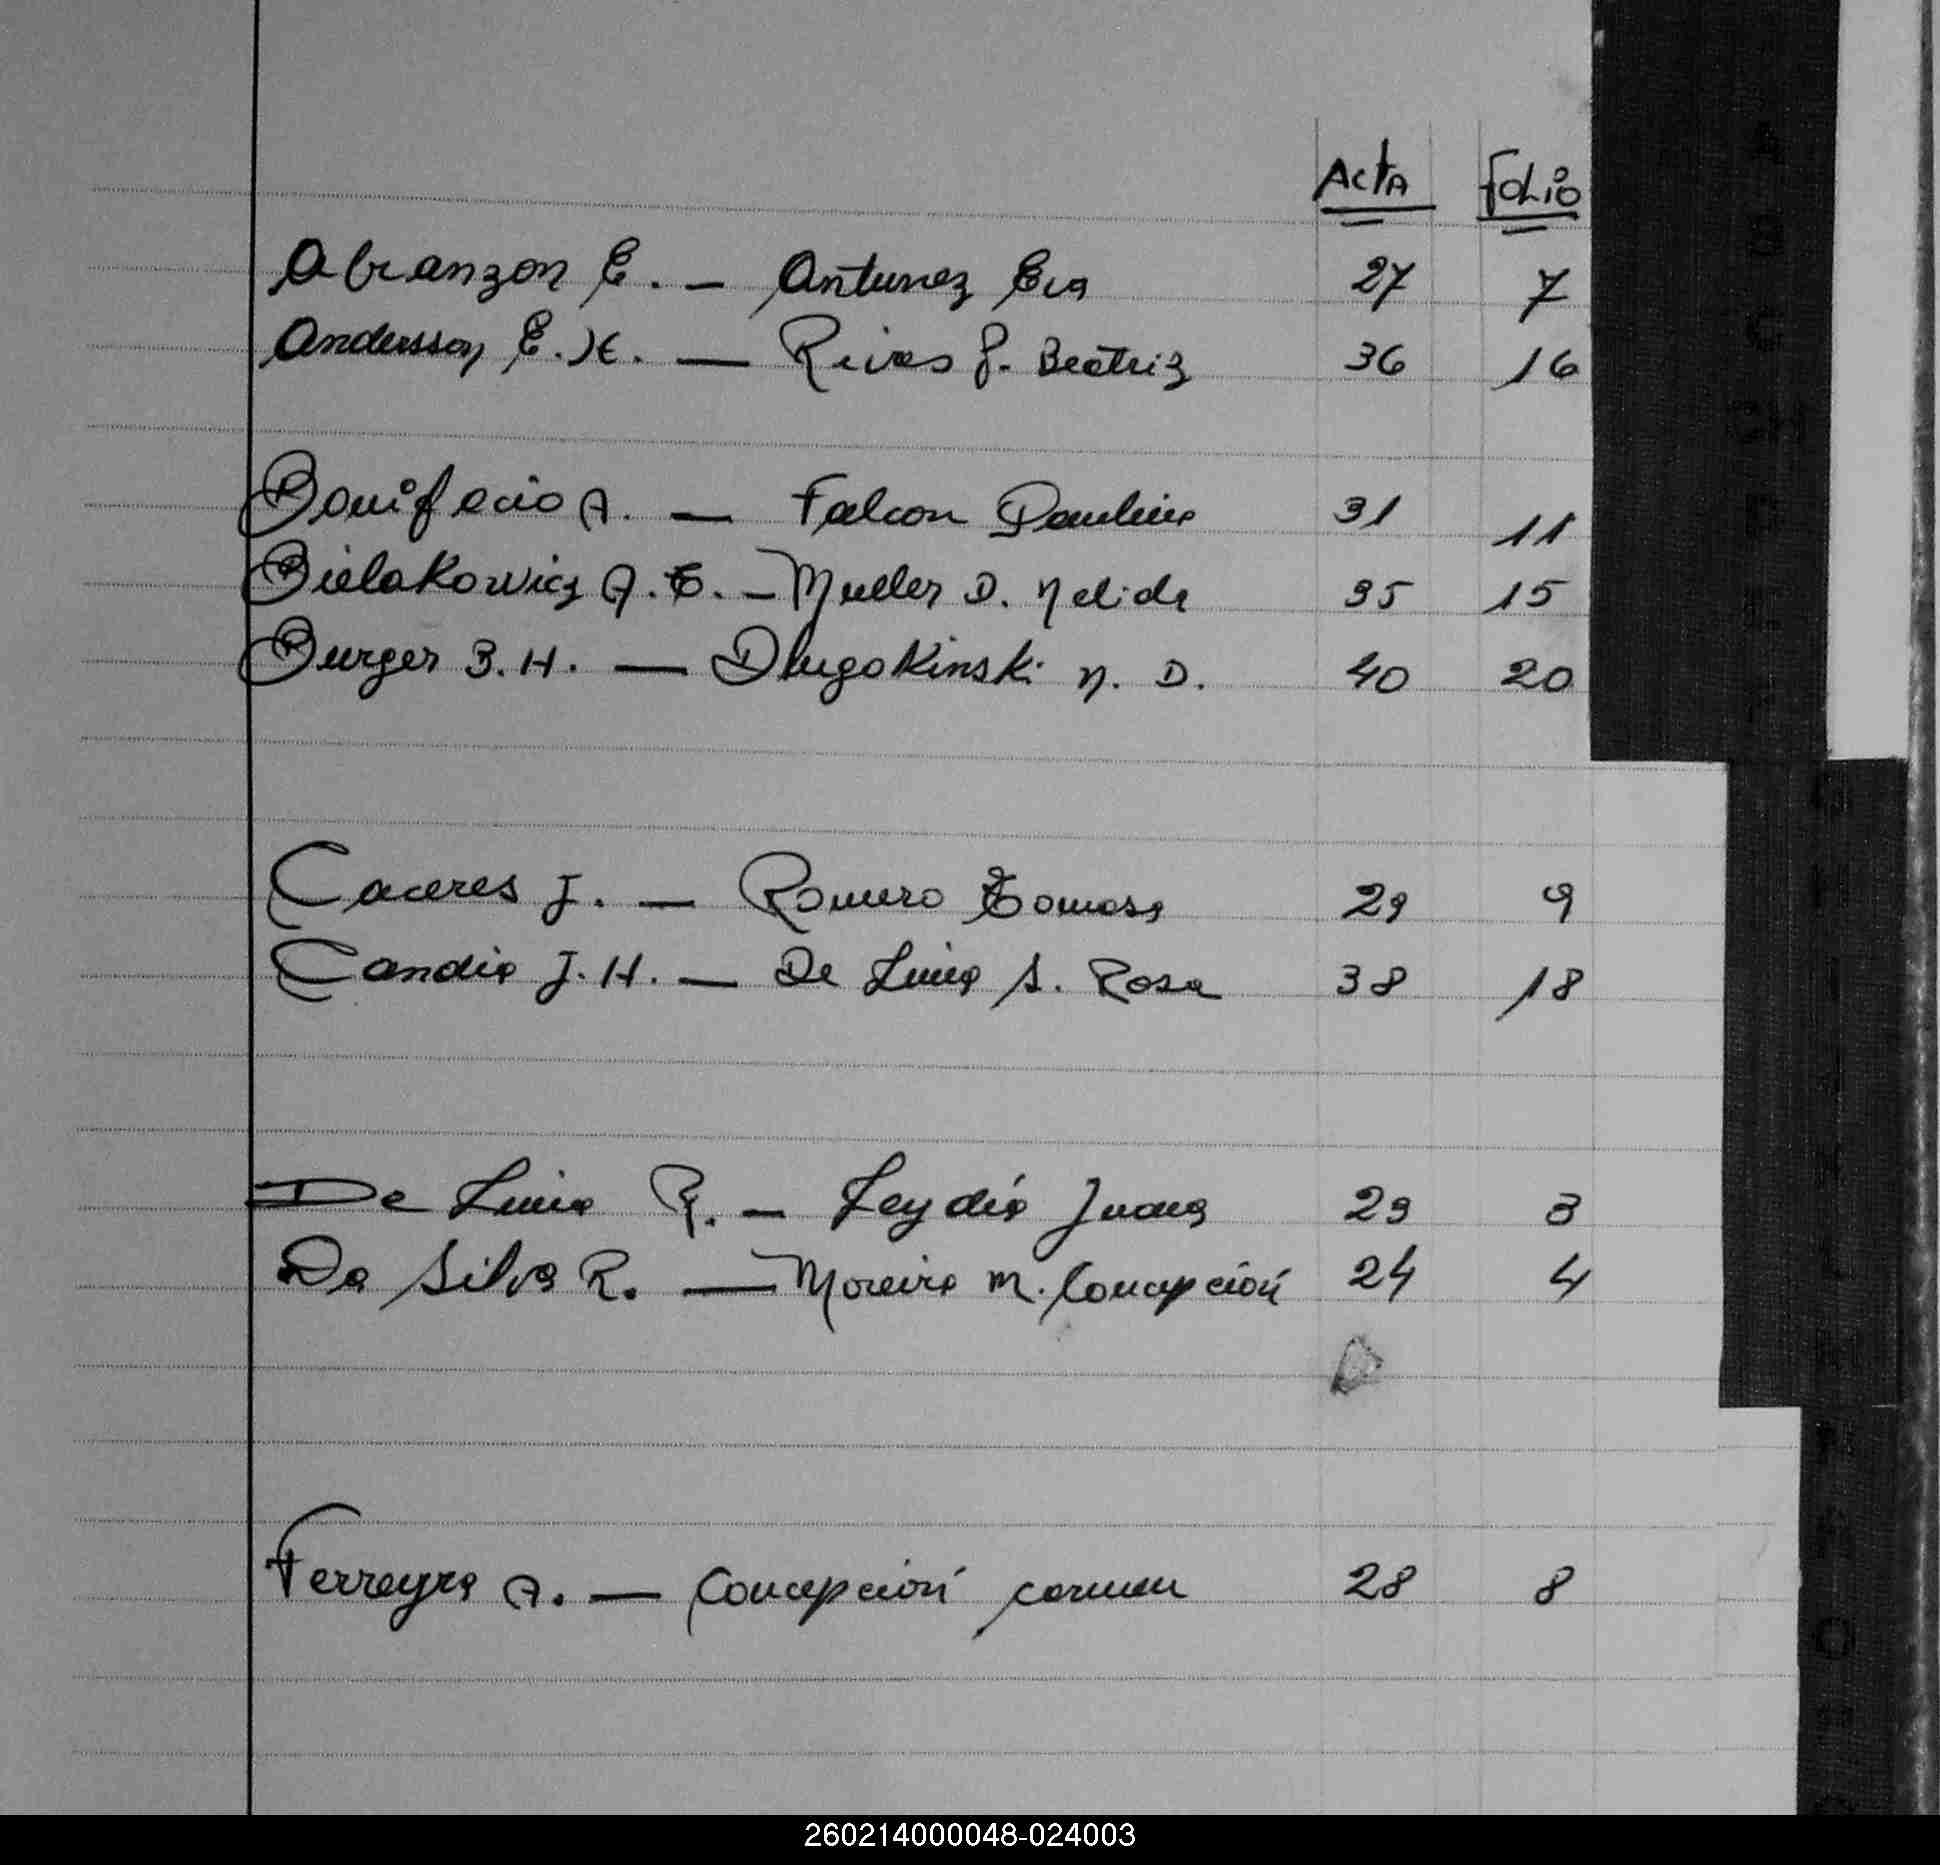 Acta Folio
Abranzon E. — Antunez Eva 27 7
Andersson E. H. — Rivas G. Beatriz 36 16
Bonifacio A. — Falcon Paulina 31 11
Bielakowicz A. E. — Muller D. Nelida 35 15
Burger B. H. — Dlugokinski N. D. 40 20
Caceres J. — Romero Tomasa 29 9
Candia J. H. — De Lima S. Rosa 38 18
De Lima R. — Leydia Juana 23 3
Da Silva R. — Moreira M. Concepción 24 4
Ferreyra A. — Concepción Carmen 28 8
260214000048-024003